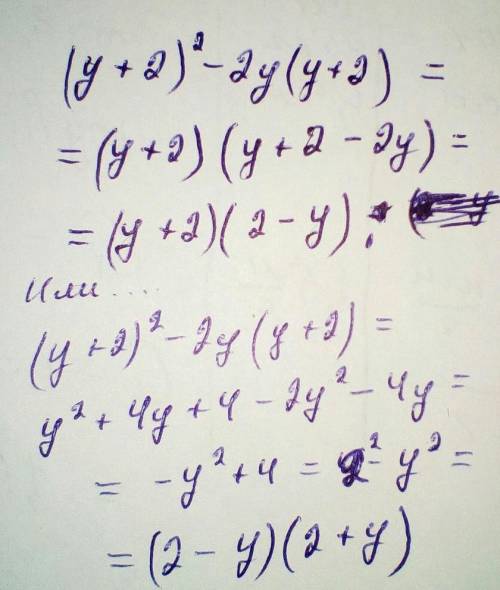 (y + 2)² - 2y(y+2) =
= (y+2) (y+2 - 2y) =
= (y+2)(2-y).
Или ....
(y+2)² - 2y(y+2) =
y² + 4y + 4 - 2y² - 4y =
= -y² + 4 = 2² - y² =
= (2 - y)(2 + y)